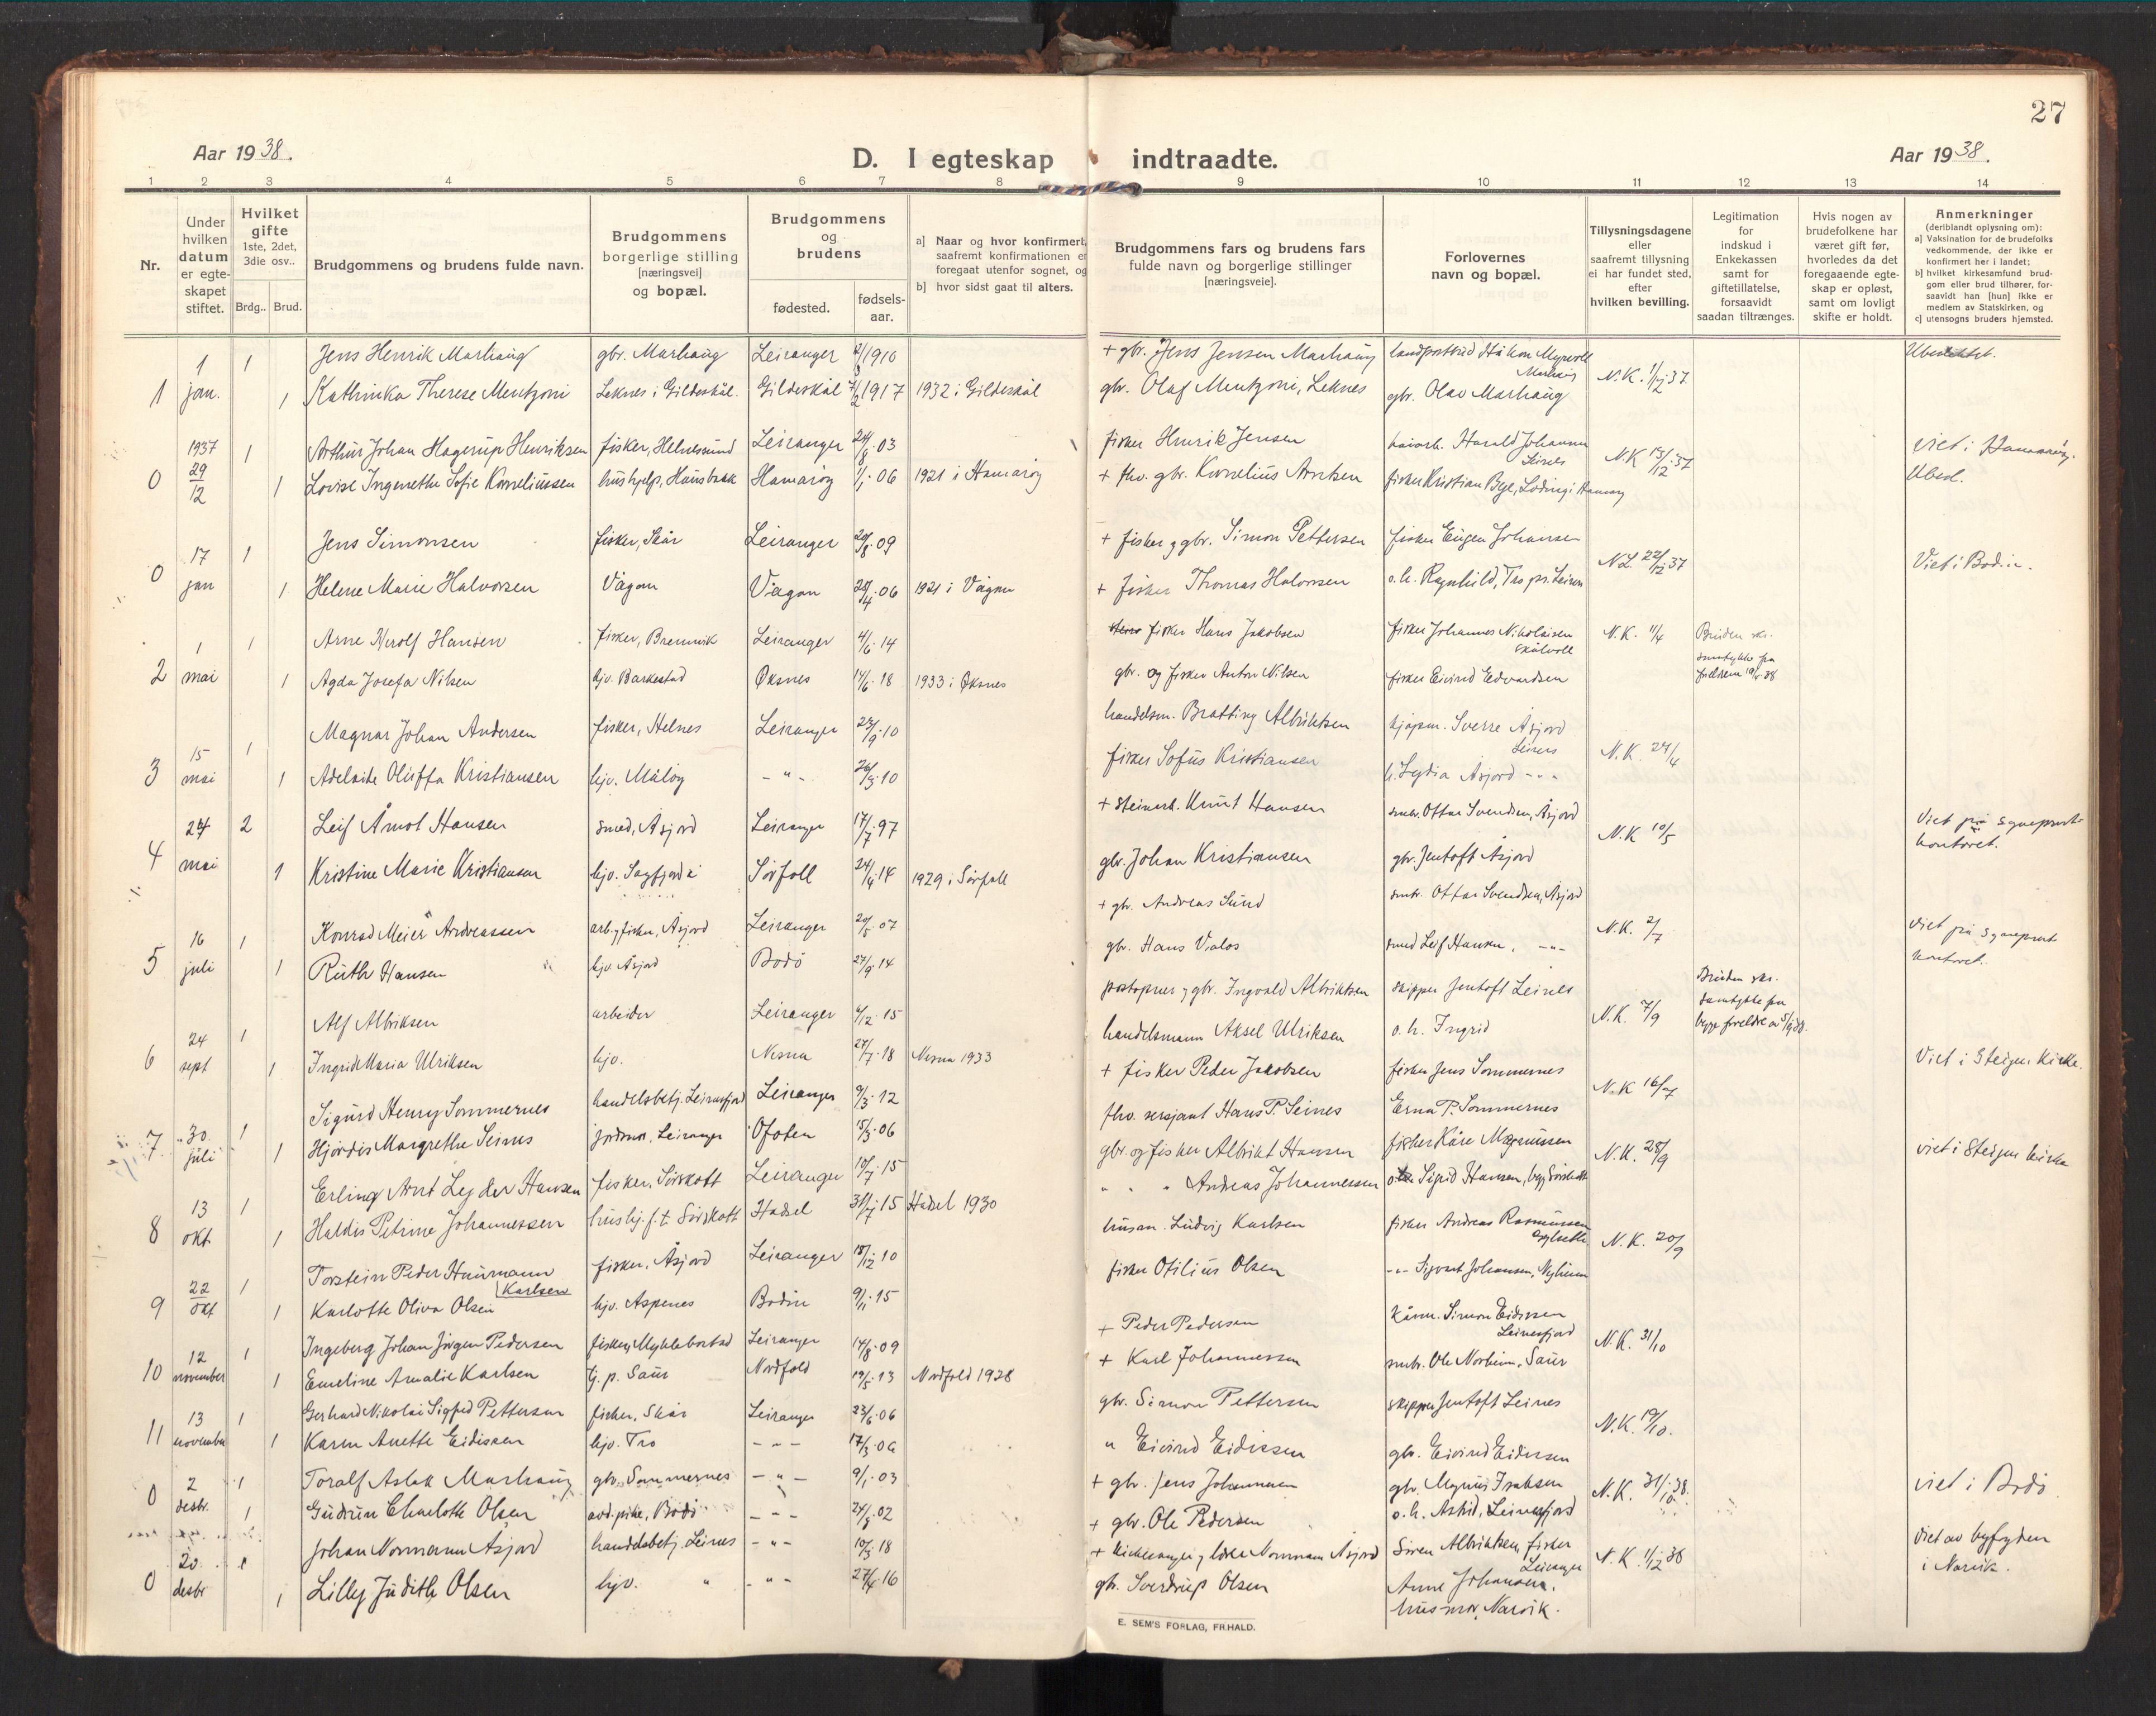 27
Aar 1938.
D. I egteskap indtraadte.
Aar 1938.
1 2 3 4 5 6 7 8 9 10 11 12 13 14
Nr.
Under hvilken datum er egteskapet stiftet.
Hvilket gifte 1ste, 2det, 3die osv..
Brdg.. Brud.
Brudgommens og brudens fulde navn.
Brudgommens borgerlige stilling [næringsvei] og bopæl.
Brudgommens og brudens
fødested.
fødsels-aar.
a] Naar og hvor konfirmert, saafremt konfirmationen er foregaat utenfor sognet, og
b] hvor sidst gaat til alters.
Brudgommens fars og brudens fars fulde navn og borgerlige stillinger [næringsveie].
Forlovernes navn og bopæl.
Tillysningsdagene eller saafremt tillysning ei har fundet sted, efter hvilken bevilling.
Legitimation for indskud i Enkekassen samt for giftetillatelse, forsaavidt saadan tiltrænges.
Hvis nogen av brudefolkene har været gift før, hvorledes da det foregaaende egteskap er opløst, samt om lovligt skifte er holdt.
Anmerkninger (deriblandt oplysning om):
a] Vaksination for de brudefolks vedkommende, der ikke er konfirmert her i landet;
b] hvilket kirkesamfund brudgom eller brud tilhører, forsaavidt han [hun] ikke er medlem av Statskirken, og
c] utensogns bruders hjemsted.
1 1 Jens Henrik Marhaug gbr. Marhaug Leiranger 1910 + gbr. Jens Jensen Marhaug landpostbud Håkon Myrvoll Marhaug
1 jan. 1 Kathinka Therese Mentzoni Leknes i Gildeskål. Gildeskål 1917 1932 i Gildeskål gbr. Olaf Mentzoni, Leknes gbr. Olav Marhaug N.K. 1/12 37
1937 1 Arthur Johan Hagerup Henriksen fisker, Helnessund Leiranger 03 fisker Henrik Jensen Harald Johansen Leines N.K 13/12 37 viet i Hamarøy.
0 29/12 1 Lovise Ingenethe Sofie Korneliussen hushjelp, Hamarøy 1/1 06 1921 i Hamarøy + fhv. gbr. Kornelius Arntsen fisker Kristian
17 1 Jens Simonsen fisker, Skår Leiranger 20/8 09 + fisker og gbr. Simon Pettersen fisker Eugen Johansen
0 jan 1 Helene Marie Halvorsen Vågan Vågan 20/4 06 1921 i Vågan + fisker Thomas Halvorsen o.h. Ragnhild, N.L 22/12 37 Viet i Bodin.
1 1 Arne Herolf Hansen fisker, Brennvik Leiranger 4/6 14 fisker Hans Jakobsen fisker Johannes Nikolaisen Skålvoll N.K. 11/4 Bruden skr. samtykke fra
2 mai 1 Agda Josefa Nilsen hjv. Barkestad Øksnes 14/6 18 1933 i Øksnes gbr. og fisker Anton Nilsen fisker Eivind Edvardsen
15 1 Magnar Johan Andersen fisker, Helnes Leiranger 23/9 10 handelsm. Bratting Albriktsen kjøpm. Sverre Åsjord Leines N.K. 24/4
3 mai 1 Adelaide Oluffa Kristiansen hjv. Måløy - " - 26/3 10 fisker Sofus Kristiansen h. Lydia Åsjord - " -
24 2 Leif Årnot Hansen smed, Åsjord Leiranger 17/7 97 + steinarb. Knut Hansen smbr. Ottar Svendsen, Åsjord N.K 10/5 Viet på sogneprest-kontoret.
4 mai 1 Kristine Marie Kristiansen hjv. Sagfjord Sørfoll 24/4 14 1929 i Sørfoll gbr. Johan Kristiansen gbr. Jentoft Åsjord
16 1 Konrad Meier Andreassen arb. og fisker, Åsjord Leiranger 20/5 07 + gbr. Andreas Sund smbr. Ottar Svendsen, Åsjord N.K. 2/7 Viet på sogneprest kontoret.
5 juli 1 Ruth Hansen hjv. Åsjord Bodö 27/9 14 gbr. Hans Valos smed Leif Hansen. - " -
24 1 Alf Albriksen arbeider Leiranger 4/12 15 postopner og gbr. Ingvald Albriktsen skipper Jentoft Leines N.K. 7/9 Bruden skr. samtykke fra begge foreldre
6 sept 1 Ingrid Maria Ulriksen hjv. Nesna 27/7 18 Nesna 1933 handelsmann Aksel Ulriksen o.h. Ingrid
30 1 Sigurd Henry Sommernes handelsbetj. Leinesfjord Leiranger 9/3 12 + fisker Peder Jakobsen fisker Jens Sommernes N.K 16/7 Viet i Steigen Kirke.
7 juli 1 Hjørdis Margrethe Seines Leiranger Ofoten 15/3 06 fhv. sersjant Hans P. Seines Erna P. Sommernes
13 1 Erling Arnt Leyder Hansen fisker, Sørskott Leiranger 10/7 15 gbr. og fisker Albrikt Hansen fisker Kåre Magnussen N.K. 28/9 viet i Steigen kirke
8 okt 1 Haldis Petrine Johannessen hushj. f.t. Sørskott Hadsel 31/7 15 Hadsel 1930 " " " Andreas Johannessen Sigrid Hansen, begge Sørskott
22 1 Torstein Peder Huurmann Karlsen fisker, Åsjord Leiranger 18/12 10 husm. Ludvig Karlsen fisker Andreas Rasmussen N.K. 20/9
9 okt 1 Karlotte Oliva Olsen hjv. Aspenes Bodin 9/11 15 fisker Otilius Olsen - " - Sigvart Johansen, Nyheim
12 1 Ingeberg Johan Jörgen Pedersen fisker, Myklebostad Leiranger 14/8 09 + Peder Pedersen Simon Eidissen Leinesfjord N.K. 31/10
10 november 1 Emeline Amalie Karlsen tj. p. Saur Nordfold 19/5 13 Nordfold 1928 + Karl Johannessen smbr. Ole Norheim, Saur
13 1 Gerhard Nikolai Sigfred Pettersen fisker, Skår Leiranger 23/6 06 gbr. Simon Pettersen skipper Jentoft Leines N.K. 19/10.
11 november 1 Karen Anette Eidissen hjv. Tro - " - 17/3 06 " Eivind Eidissen gbr. Eivind Eidissen
2 1 Toralf Aslak Marhaug gbr. Sommernes - " - 9/1 03 + gbr. Jens Johannessen gbr. Magnus Isaksen N.K. 31/10 38. viet i Bodö
0 desbr. 1 Gudrun Charlotte Olsen Bodö - " - 24/8 02 + gbr. Ole Pedersen o.h. Astrid, Leinesfjord
20. 1 Johan Normann Åsjord handelsbetj. Leines - " - 10/3 18 + kirkesanger og lærer Normann Åsjord Sören Albriktsen, fisker Leiranger N.K. 1/12 38 Viet av byfogden i Narvik.
0 desbr 1 Lilly Judith Olsen hjv. " - " - 27/4 16 gbr. Sverdrup Olsen Anne Johansen, husmor, Narvik.
E. SEM'S FORLAG, FR.HALD.